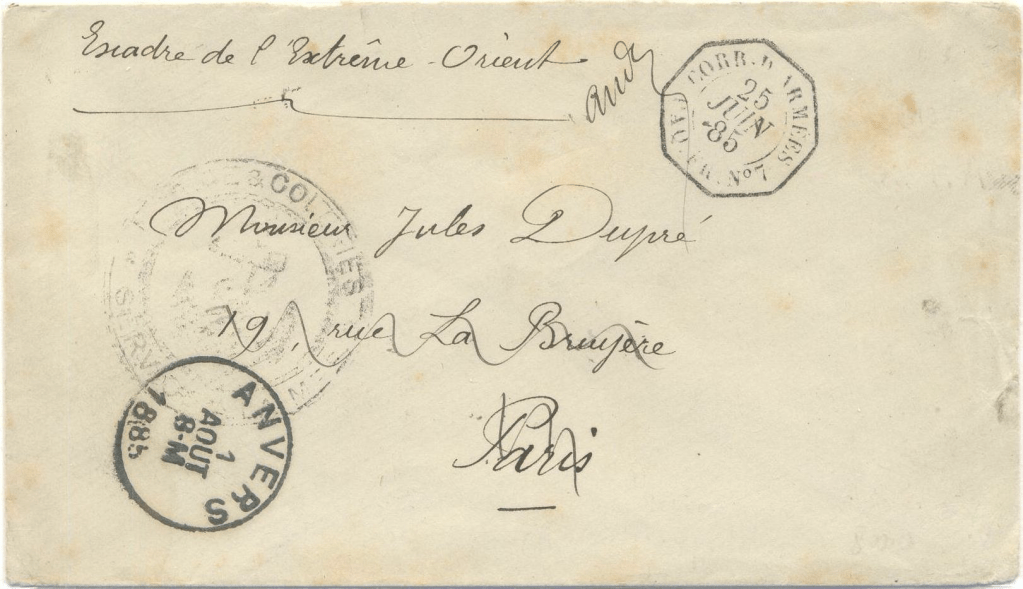 Escadre de l'Extrême-Orient
CORR. D. ARMÉES
25
JUIN
85
Nº 7
& COLONIES
Monsieur Jules Dupré
19, rue La Bruyère
Paris
ANVERS
1
AOUT
8-M
1885